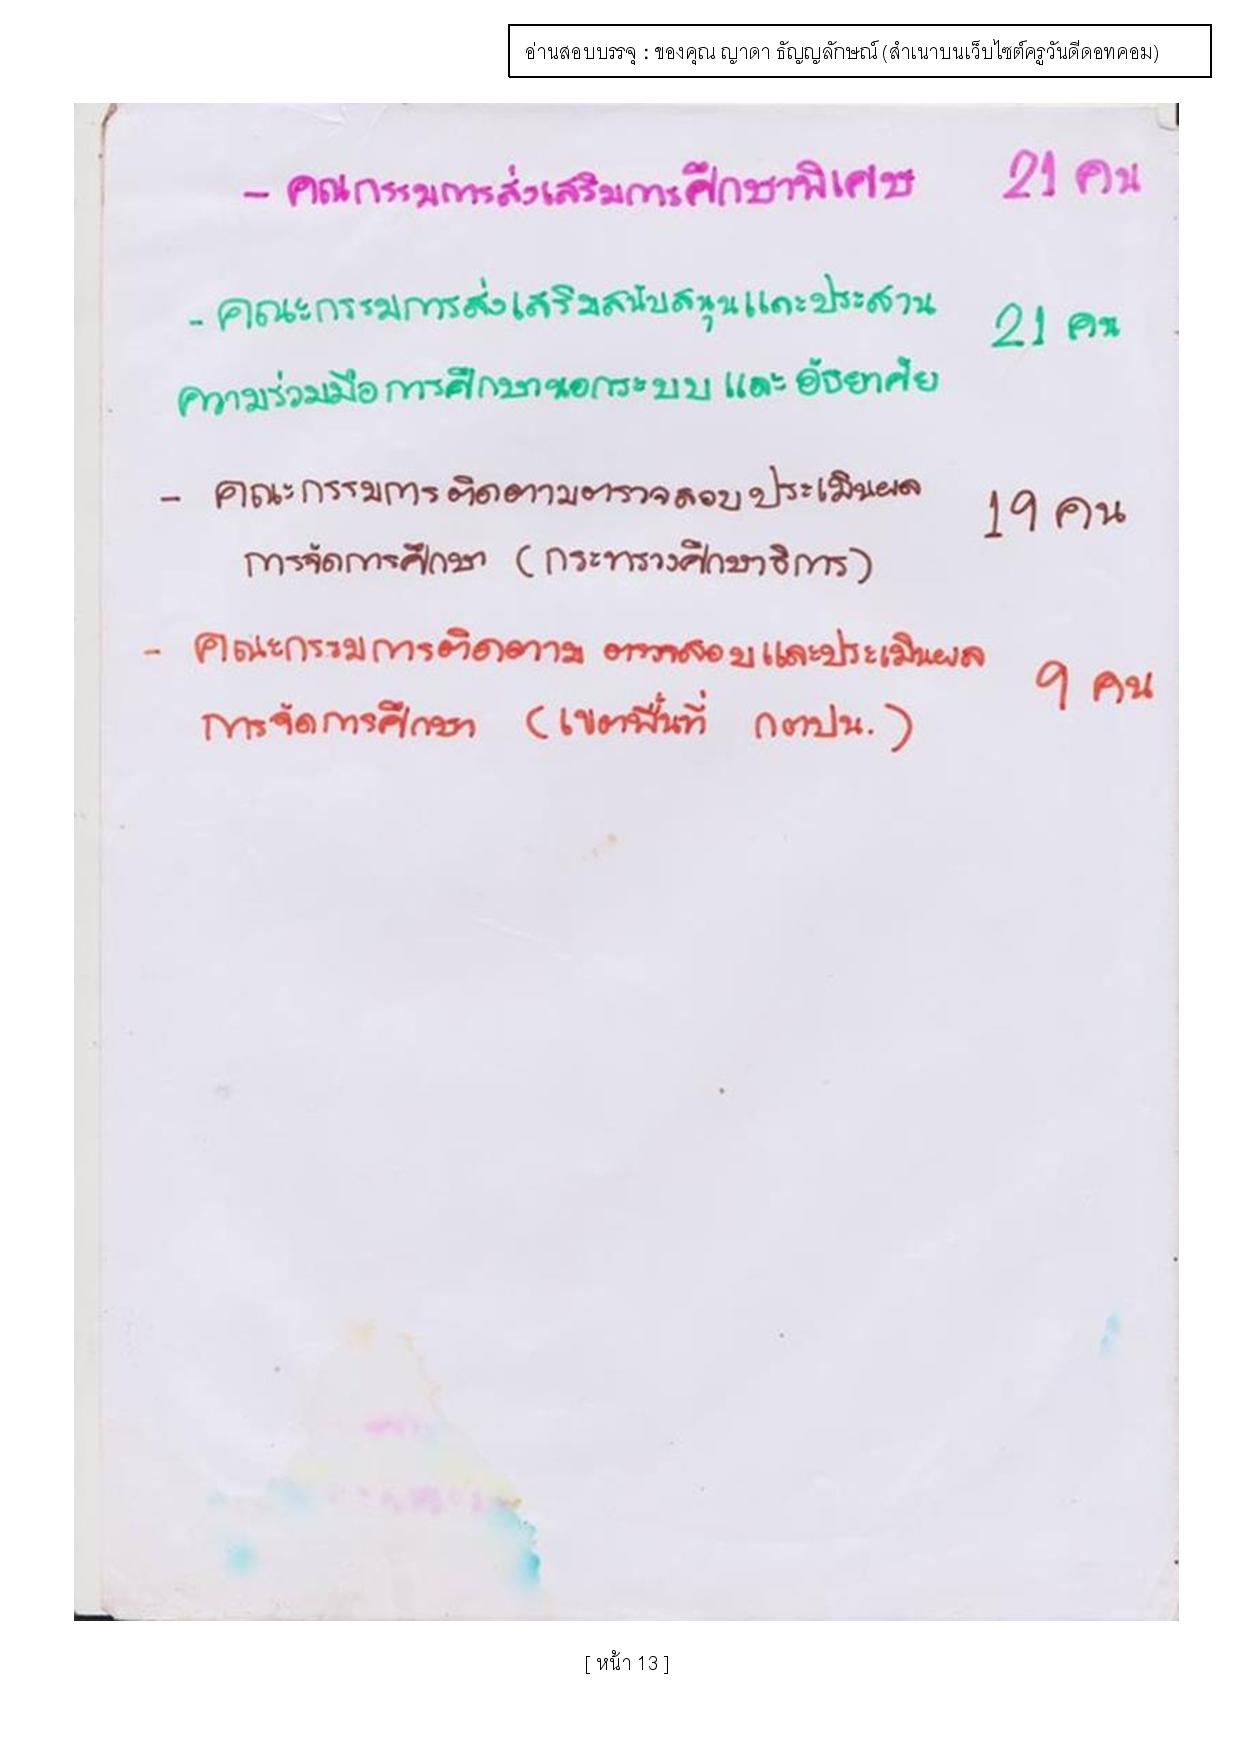 อ่านสอบบรรจุ : ของคุณ ญาดา ธัญญลักษณ์ (สำเนาบนเว็บไซต์ครูวันดีดอทคอม)
- คณกรรมการส่งเสริมการศึกษาพิเศษ 21 คน
- คณะกรรมการส่งเสริมสนับสนุนและประสาน 21 คน
ความร่วมมือการศึกษานอกระบบ และ อัธยาศัย
- คณะกรรมการติดตามตรวจสอบประเมินผล 19 คน
การจัดการศึกษา (กระทรวงศึกษาธิการ)
- คณะกรรมการติดตาม ตรวจสอบและประเมินผล 9 คน
การจัดการศึกษา (เขตพื้นที่ กตปน.)
[ หน้า 13 ]